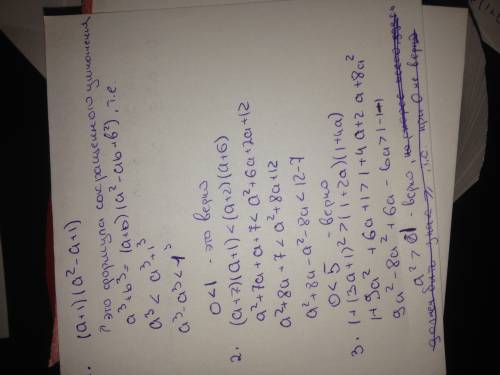 1. (a+1)(a²-a+1)
это формула сокращенного умножения
a³+b³=(a+b)(a²-ab+b²), т.е.
a³<a³+1³
a³-a³<1³
0<1 - это верно
2. (a+7)(a+1)<(a+2)(a+6)
a²+7a+a+7<a²+6a+2a+12
a²+8a+7<a²+8a+12
a²+8a-a²-8a<12-7
0<5 - верно
3. 1+(3a+1)²>(1+2a)(1+4a)
1+9a²+6a+1>1+4a+2a+8a²
9a²-8a²+6a-6a>1-1-1
a²>-1 - верно,
должен быть знак ≥, т.е. при 0 не верно